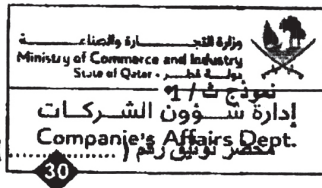 وزارة التجـــــارة والصناعـــة
Ministry of Commerce and Industry
State of Qatar - دولـــة قطـــر
نموذج ث / 1 *
إدارة شـــؤون الشـــركـــات
Companie's Affairs Dept.
محضر توثيق رقم ( ..........
30